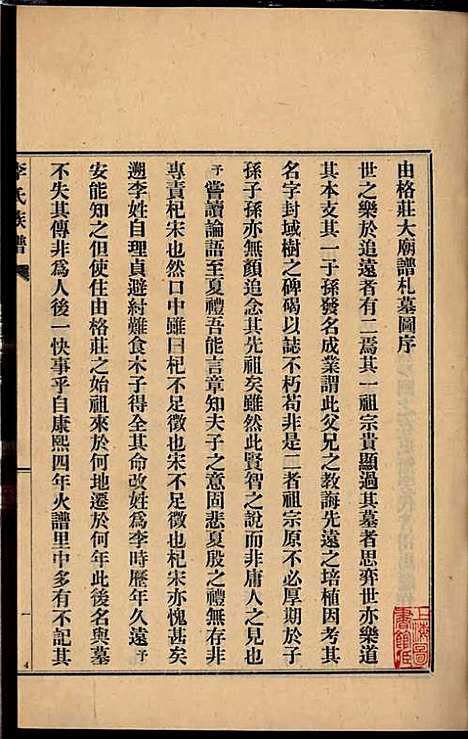 由格莊大廟譜札墓圖序
世之樂於追遠者有二焉其一祖宗貴顯過其墓者思弈世亦樂道
其本支其一子孫發名成業謂此父兄之教誨先遠之培植因考其
名字封域樹之碑碣以誌不朽苟非是二者祖宗原不必厚期於子
孫子孫亦無顏追念其先祖矣雖然此賢智之說而非庸人之例也
予嘗讀論語至夏禮吾能言章知夫子之意固悲夏殷之禮無存非
專責杞宋也然口中雖曰杞不足徵也宋不足徵也杞宋亦愧甚矣
遡李姓自理貞避紂難食木子得全其命改姓爲李時歷年久遠予
安能知之但使住由格莊之始祖來於何地遷於何年此後名與墓
不失其傳非爲人後一快事乎自康熙四年火譜里中多有不記其
李氏族譜
一
4
上海圖書館藏